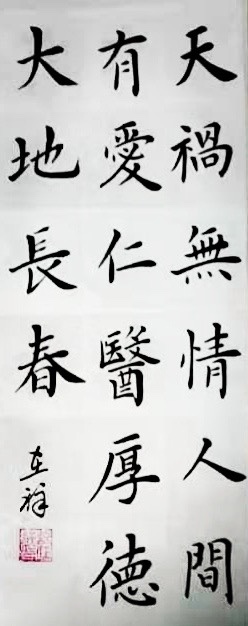 天禍無情人間
有愛仁醫厚德
大地長春